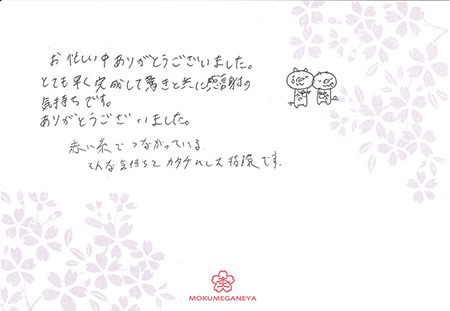 お忙しい中ありがとうございました。
とても早く完成して驚きと共に感謝の
気持ちです。
ありがとうございました。
赤い糸でつながっている
そんな気持ちをカタチにした指環です。
MOKUMEGANEYA